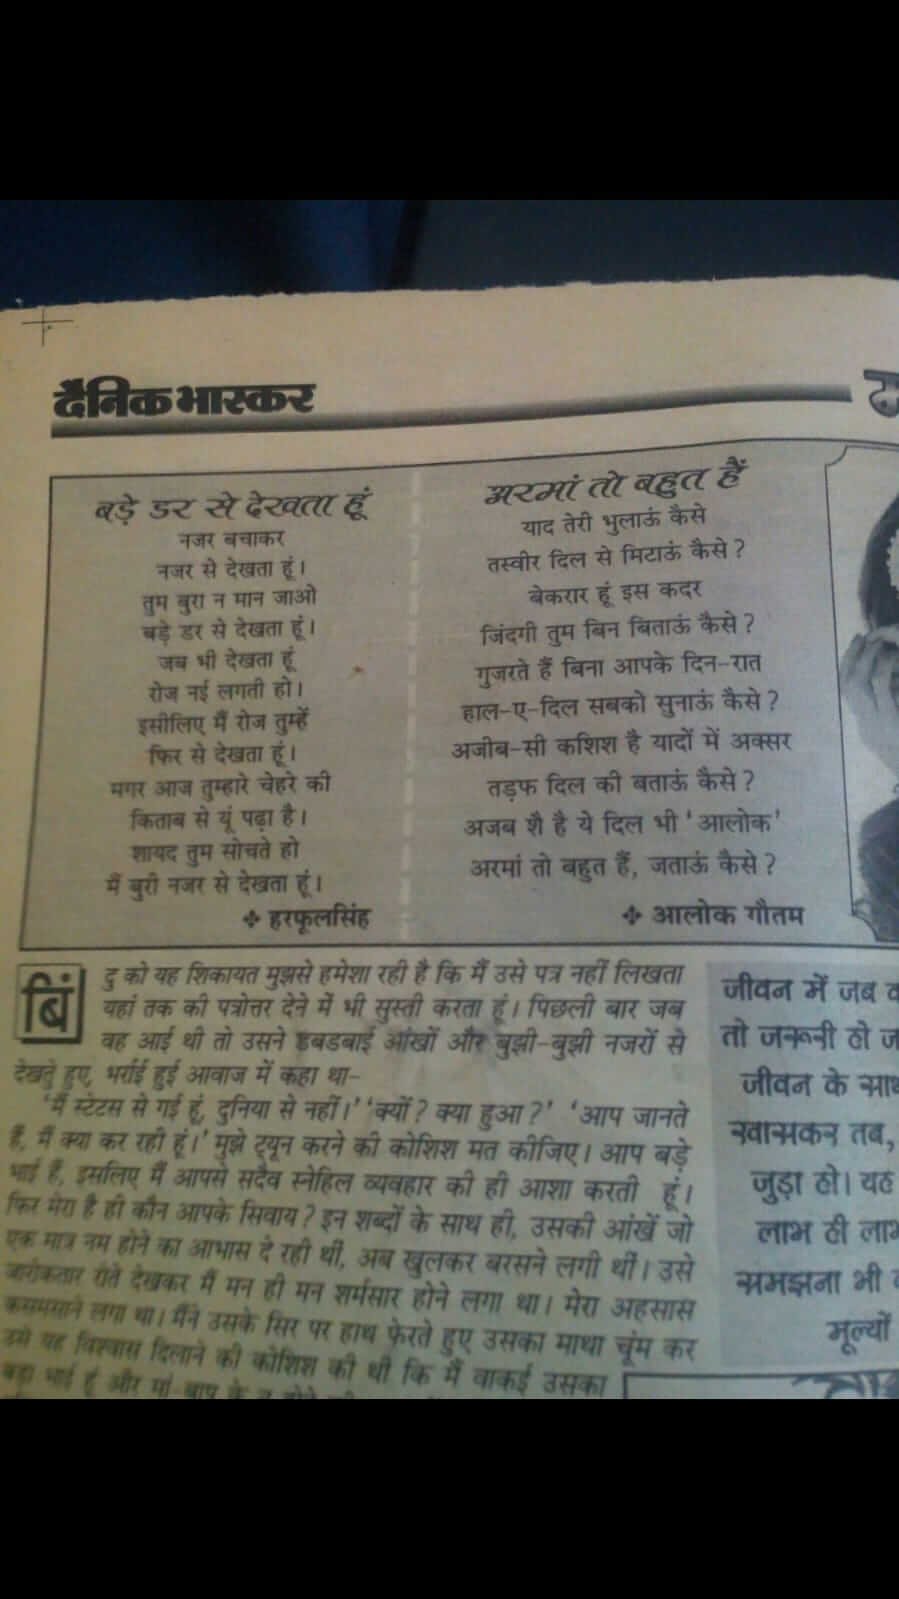 दैनिक भास्कर
बड़े डर से देखता हूं
नजर बचाकर
नजर से देखता हूं।
तुम बुरा न मान जाओ
बड़े डर से देखता हूं।
जब भी देखता हूं
रोज नई लगती हो।
इसीलिए मैं रोज तुम्हें
फिर से देखता हूं।
मगर आज तुम्हारे चेहरे की
किताब से यूं पढ़ा है।
शायद तुम सोचते हो
मैं बुरी नजर से देखता हूं।
❖ हरफूलसिंह
अरमां तो बहुत हैं
याद तेरी भुलाऊं कैसे
तस्वीर दिल से मिटाऊं कैसे?
बेकरार हूं इस कदर
जिंदगी तुम बिन बिताऊं कैसे?
गुजरते हैं बिना आपके दिन-रात
हाल-ए-दिल सबको सुनाऊं कैसे?
अजीब-सी कशिश है यादों में अक्सर
तड़फ दिल की बताऊं कैसे?
अजब शै है ये दिल भी 'आलोक'
अरमां तो बहुत हैं, जताऊं कैसे?
❖ आलोक गौतम
बिंदु को यह शिकायत मुझसे हमेशा रही है कि मैं उसे पत्र नहीं लिखता
यहां तक की पत्रोत्तर देने में भी सुस्ती करता हूं। पिछली बार जब
वह आई थी तो उसने डबडबाई आंखों और बुझी-बुझी नजरों से
देखते हुए, भर्राई हुई आवाज में कहा था-
'मैं स्टेटस से गई हूं, दुनिया से नहीं।' 'क्यों? क्या हुआ?' 'आप जानते
हैं, मैं क्या कर रही हूं।' मुझे ट्यून करने की कोशिश मत कीजिए। आप बड़े
भाई हैं, इसलिए मैं आपसे सदैव स्नेहिल व्यवहार की ही आशा करती हूं।
फिर मेरा है ही कौन आपके सिवाय? इन शब्दों के साथ ही, उसकी आंखें जो
एक मात्र नम होने का आभास दे रही थीं, अब खुलकर बरसने लगी थीं। उसे
रोते देखकर मैं मन ही मन शर्मसार होने लगा था। मेरा अहसास
कसमसाने लगा था। मैंने उसके सिर पर हाथ फेरते हुए उसका माथा चूंम कर
उसे यह विश्वास दिलाने की कोशिश की थी कि मैं वाकई उसका
बड़ा भाई हूं और मां-बाप के
जीवन में जब
तो जरूरी हो
जीवन के
खासकर तब,
जुड़ा हो। यह
लाभ ही
समझना भी
मूल्यों